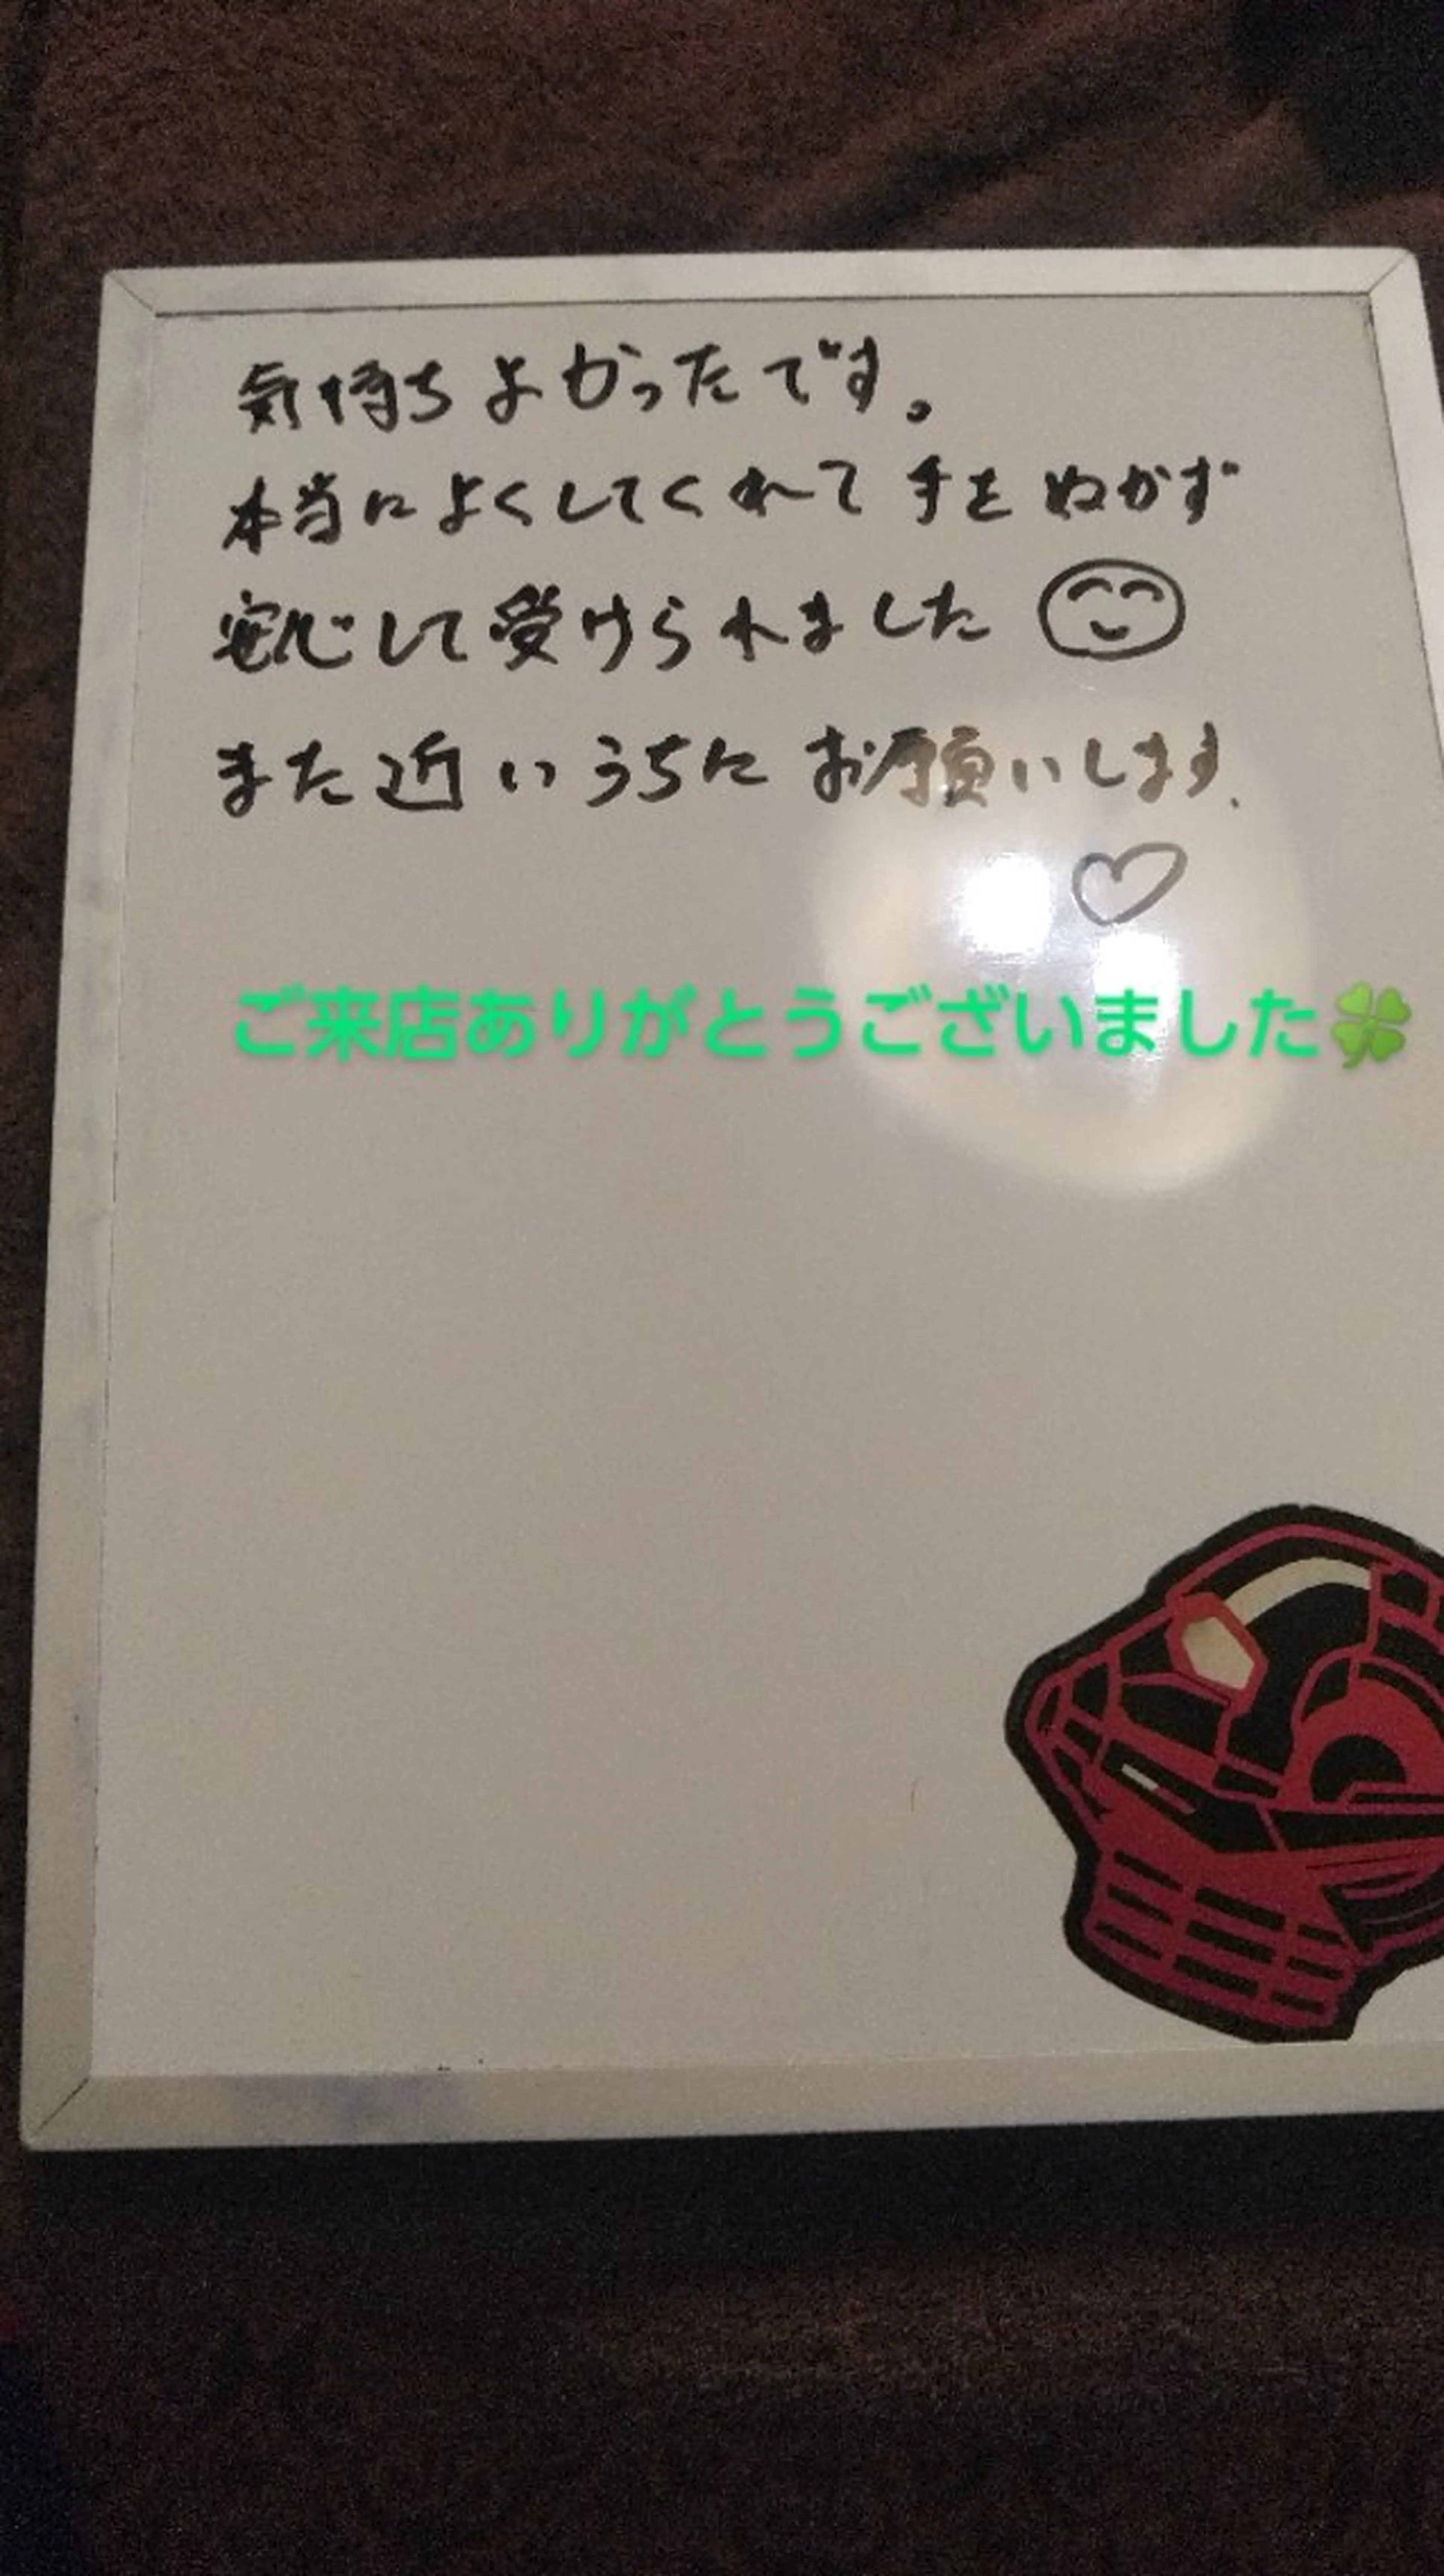 気持ちよかったです。
本当によくしてくれて手をぬかず
安心して受けられました
また近いうちにお願いします、
ご来店ありがとうございました🍀